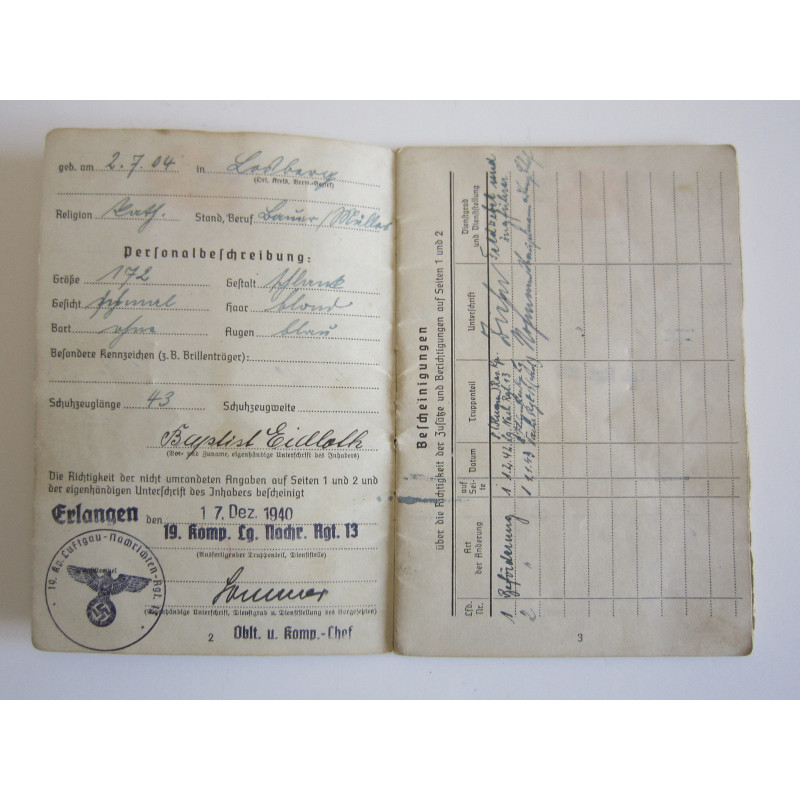 geb. am 2.7.04 in
(Ort, Kreis, Verw.-Bezirk)
Religion Kath. Stand, Beruf Bauer / Müller
Personalbeschreibung:
Größe 172 Gestalt schlank
Gesicht schmal Haar blond
Bart ohne Augen blau
Besondere Kennzeichen (z.B. Brillenträger):
Schuhzeuglänge 43 Schuhzeugweite
Baptist Eidloth
(Vor- und Zuname, eigenhändige Unterschrift des Inhabers)
Die Richtigkeit der nicht umrandeten Angaben auf Seiten 1 und 2 und
der eigenhändigen Unterschrift des Inhabers bescheinigt
Erlangen den 17. Dez. 1940
19. Komp. Lg. Nachr. Rgt. 13
(Ausfertigender Truppenteil, Dienststelle)
19. Kp. Luftgau-Nachrichten-Rgt.
Sommer
(Eigenhändige Unterschrift, Dienstgrad u. Dienststellung des Vorgesetzten)
2 Oblt. u. Komp.-Chef
Bescheinigungen
über die Richtigkeit der Zusätze und Berichtigungen auf Seiten 1 und 2
Lfd. Nr. Art der Änderung auf Seite Datum Truppenteil Unterschrift Dienstgrad und Dienststellung
1 Beförderung 1 1.2.42
2 " 1 1.1.43
3